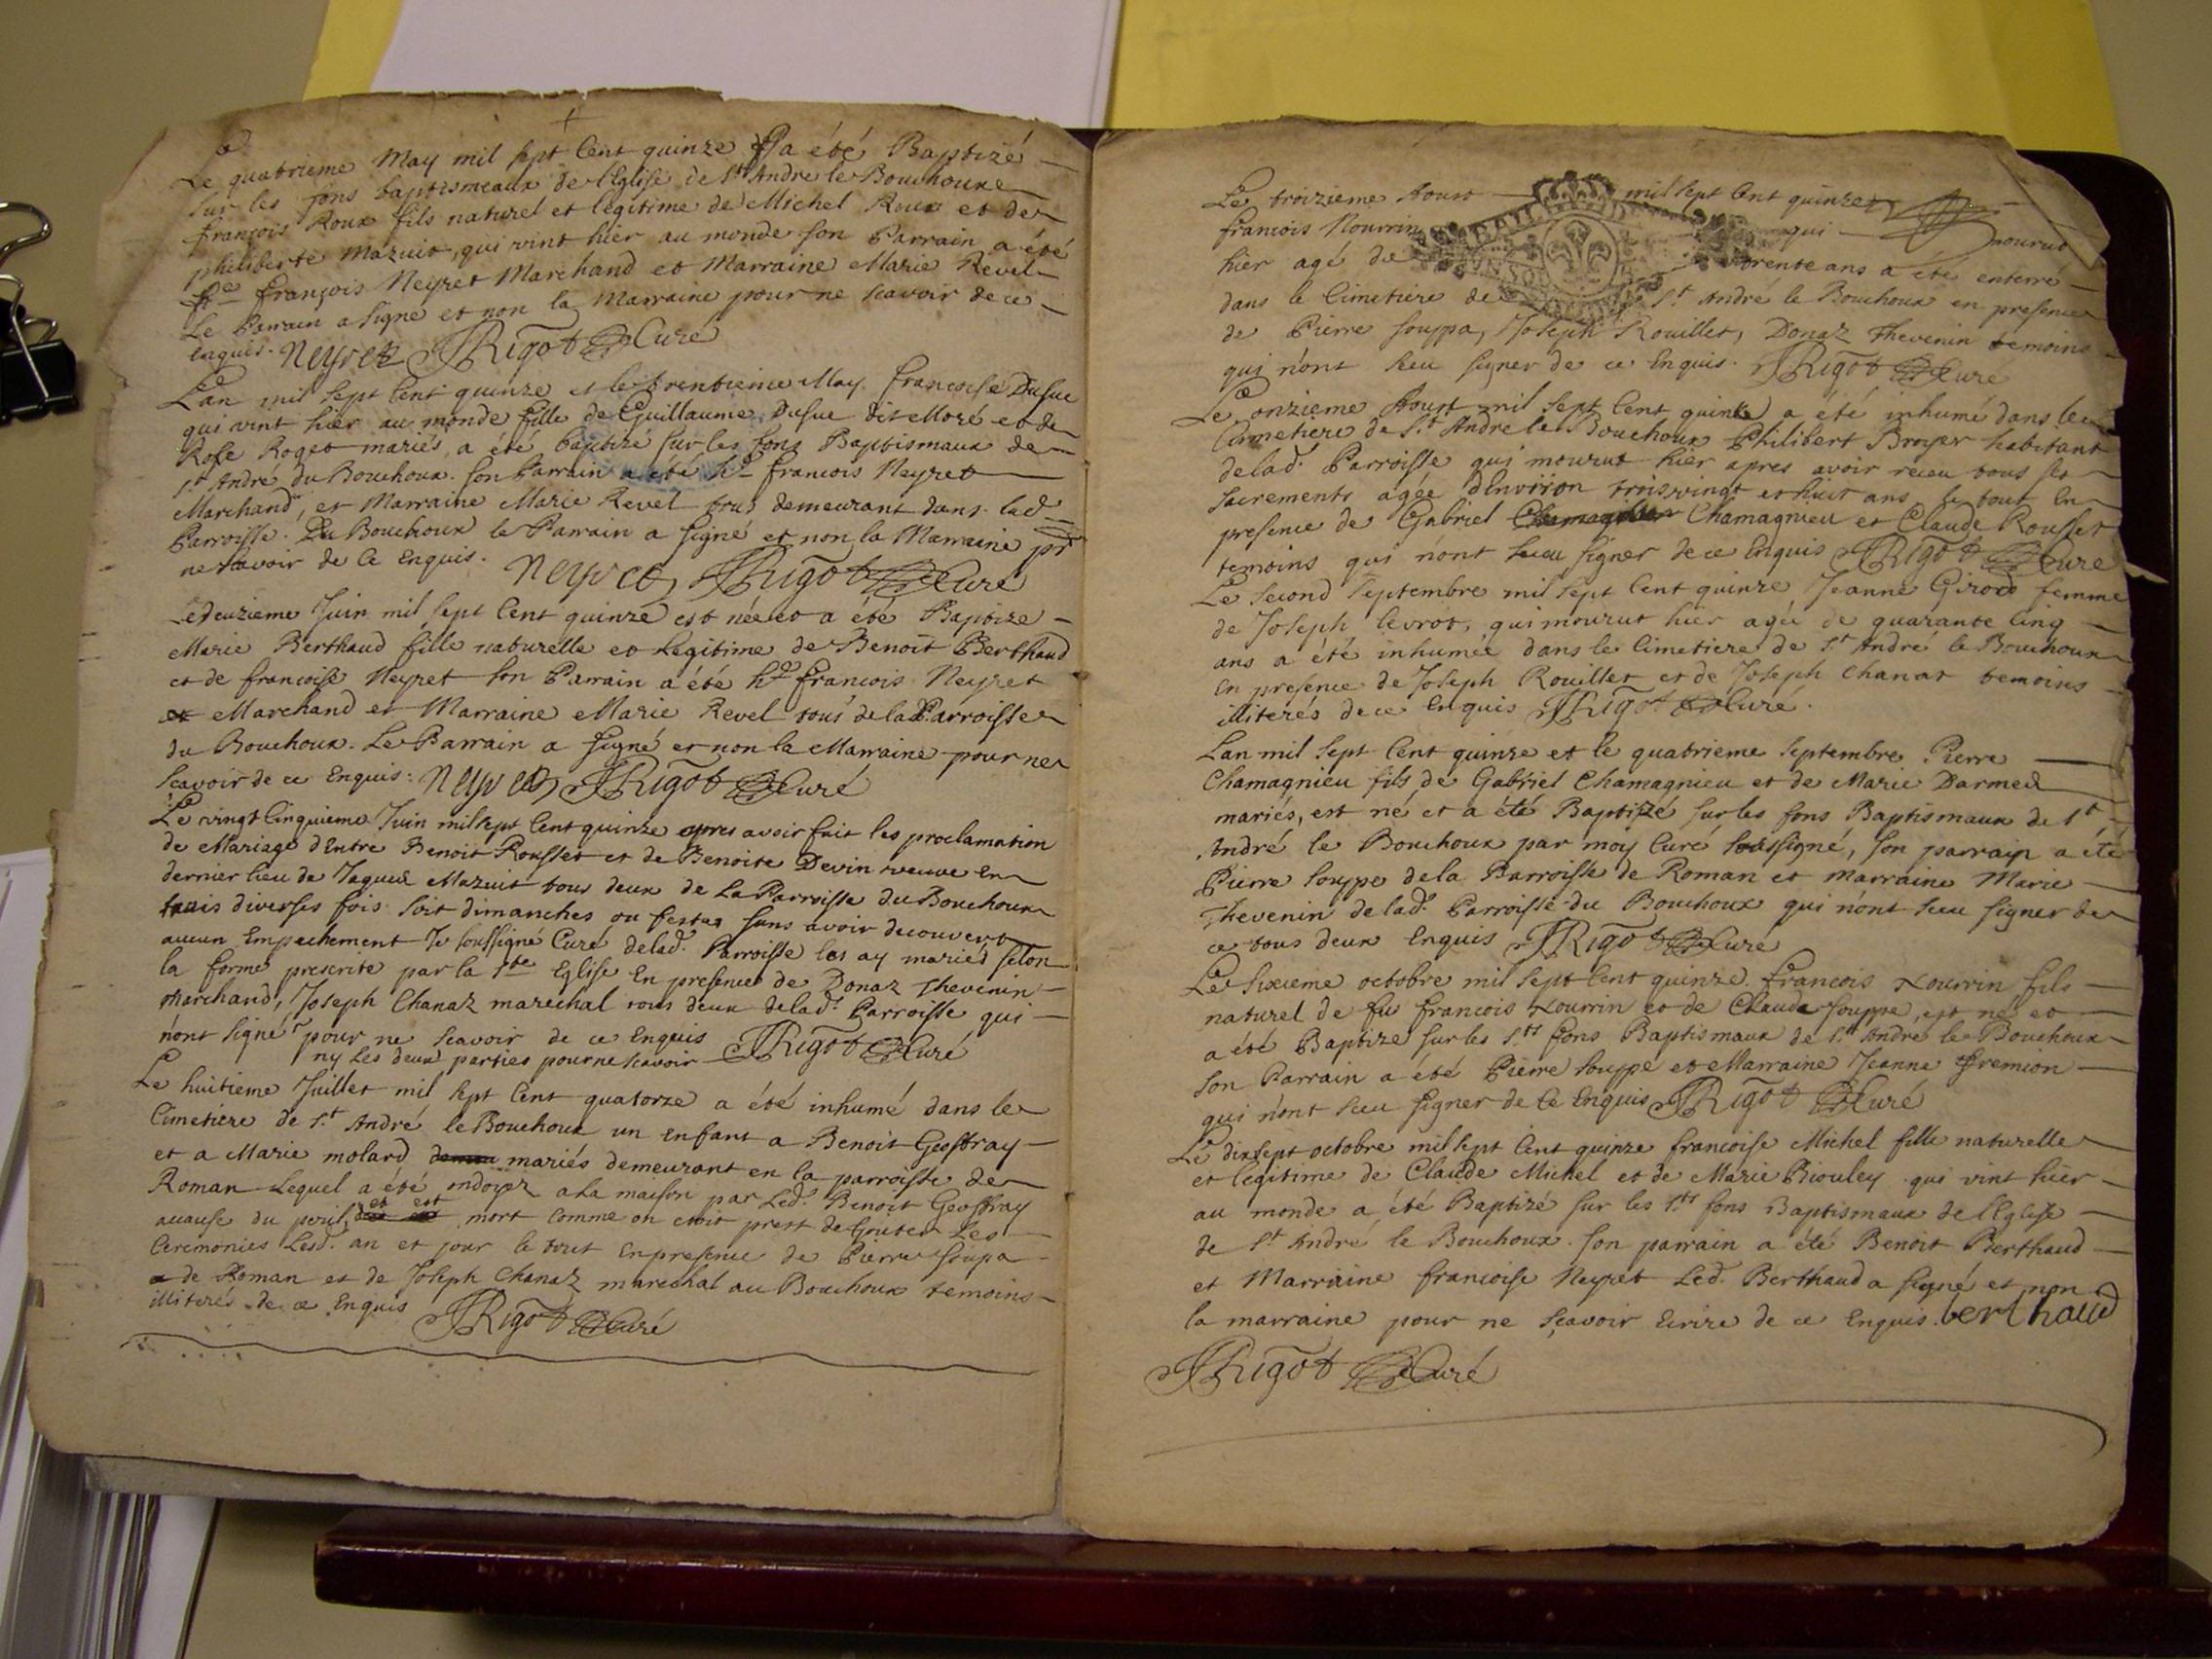 Le quatrieme May mil sept Cent quinze a été Baptizé
sur les fons baptismeaux de l'Eglise de St André le Bouchoux
françois Roux fils naturel et legitime de Michel Roux et de
philiberte Mazuit, qui vint hier au monde son Parrain a été
françois Neyret Marchand et Marraine Marie Revel
Le Parrain a signé et non la Marraine pour ne scavoir de ce
enquis. Neyret JRigot Curé
Lan mil sept Cent quinze et le trentieme May francoise Dufue
qui vint hier au monde fille de Guillaume Dufue dit Moré et de
Rose Roget mariés, a été baptizé sur les fons Baptismaux de
St André du Bouchoux. son Parrain a été hr francois Neyret
Marchand, et Marraine Marie Revel tous demeurant dans lad
Parroisse. Du Bouchoux le Parrain a signé et non la Marraine pr
ne scavoir de ce enquis. Neyret JRigot Curé
Le deuzieme Juin mil sept Cent quinze est née et a été Baptize
Marie Berthaud fille naturelle et legitime de Benoit Berthaud
et de francoise Neyret son Parrain a été hr francois Neyret
Marchand et Marraine Marie Revel tous de lad. Parroisse
du Bouchoux. Le Parrain a signé et non la Marraine pour ne
scavoir de ce Enquis: Neyret JRigot Curé
Le vingt Cinquieme Juin mil sept Cent quinze apres avoir fait les proclamation
de Mariage d'Entre Benoit Rousset et de Benoite Devin veuve en
dernier lieu de Jaques Mazuit tous deux de La Parroisse du Bouchoux
trois diverses fois soit dimanches ou festes sans avoir decouvert
aucun Empechement Je soussigné Curé de lad. Parroisse les ay mariés selon
la forme prescrite par la Ste Eglise En presence de Donaz Thevenin
Marchand, Joseph Chanaz marechal tous deux de lad. Parroisse qui
n'ont signé pour ne scavoir de ce enquis JRigot Curé
ny Les deux parties pour ne scavoir
Le huitieme Juillet mil sept Cent quatorze a été inhumé dans le
Cimetiere de St André le Bouchoux un enfant a Benoit Geoffray
et a Marie molard mariés demeurant en la parroisse de
Roman Lequel a été indoyez a La maison par Led. Benoit Geoffray
acause du peril, et est mort comme on etoit prest de Les
Ceremonies Lesd. an et jour le tout En presence de Pierre Soupa
de Roman et de Joseph Chanaz marechal au Bouchoux temoins
illiterés de ce Enquis JRigot Curé
Le troizieme Aoust mil sept Cent quinze
francois Nourrin qui mourut
hier agé de trente ans a été enterré
dans le Cimetiere de St André le Bouchoux en presence
de Pierre Souppa, Joseph Rouillet, Donaz Thevenin temoins
qui n'ont sceu signer de ce Enquis. JRigot Curé
Le onzieme Aoust mil sept Cent quinze a été inhumé dans le
Cimetiere de St André le Bouchoux Philibert Broyer habitant
de lad. Parroisse qui mourut hier apres avoir receu tous ses
sacrements agée d'Environ trois vingt et huit ans le tout En
presence de Gabriel Chamagnieu et Claude Rousset
temoins qui n'ont sceu signer de ce Enquis JRigot Curé
Le second Septembre mil sept Cent quinze Jeanne Girod femme
de Joseph levrot, qui mourut hier agée de quarante Cinq
ans a été inhumée dans le Cimetiere de St André le Bouchoux
En presence de Joseph Rouillet et de Joseph Chanat temoins
illiterés de ce Enquis JRigot Curé.
Lan mil sept Cent quinze et le quatrieme septembre Pierre
Chamagnieu fils de Gabriel Chamagnieu et de Marie Darmed
mariés, est né et a été Baptizé sur les fons Baptismaux de St
André le Bouchoux par moy Curé soussigné, son parrain a été
Pierre Souppe de la Parroisse de Roman et marraine Marie
Thevenin de lad. Parroisse du Bouchoux qui n'ont sceu signer de
ce tous deux Enquis JRigot Curé
Le sixieme octobre mil sept Cent quinze. francois Nourrin fils
naturel de fu francois Nourrin et de Claude Souppe, est né et
a été Baptize sur les Sts fons Baptismaux de St André le Bouchoux
son Parrain a été Pierre Souppe et Marraine Jeanne fremion
qui n'ont sceu signer de ce Enquis JRigot Curé
Le dixsept octobre mil sept Cent quinze francoise Michel fille naturelle
et legitime de Claude Michel et de Marie Biouley qui vint hier
au monde a été Baptizé sur les Sts fons Baptismaux de l'Eglise
de St André le Bouchoux. son parrain a été Benoit Berthaud
et Marraine francoise Neyret Led. Berthaud a signé et non
la marraine pour ne sçavoir Ecrire de ce Enquis. berthaud
JRigot Curé